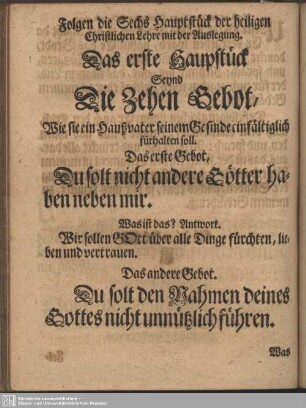 Folgen die Sechs Hauptstück der heiligen
Christlichen Lehre mit der Auslegung.
Das erste Haupstück
Seynd
Die Zehen Gebot,
Wie sie ein Haußvater seinem Gesinde einfältiglich
fürhalten soll.
Das erste Gebot,
Du solt nicht andere Götter ha-
ben neben mir.
Was ist das? Antwort.
Wir sollen GOtt über alle Dinge fürchten, lie-
ben und vertrauen.
Das andere Gebot.
Du solt den Nahmen deines
Gottes nicht unnützlich führen.
Was